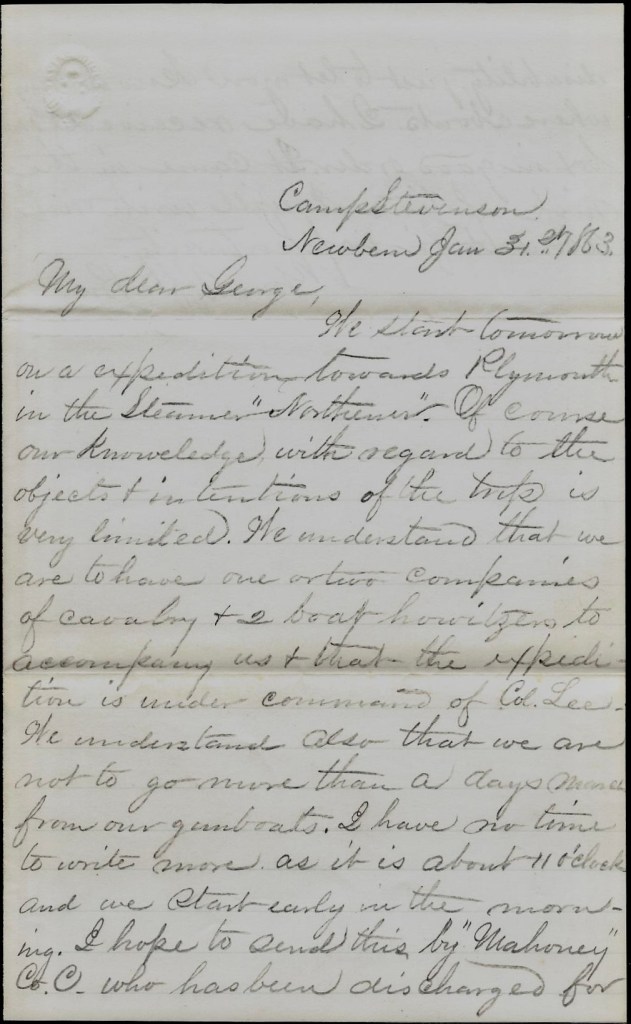 Camp Stevenson.
Newbern Jan 31. 1863.
My dear George,
We start tomorrow
on a expedition towards Plymouth
in the Steamer "Northener". Of course
our knoweledge with regard to the
objects & intentions of the trip is
very limited. We understand that we
are to have one or two companies
of cavalry & 2 boat howitzers to
accompany us & that the expedi-
tion is under command of Col. Lee.
We understand also that we are
not to go more than a days march
from our gunboats. I have no time
to write more as it is about 11 o'clock
and we start early in the morn-
ing. I hope to send this by "Mahoney"
Co. C. who has been discharged for